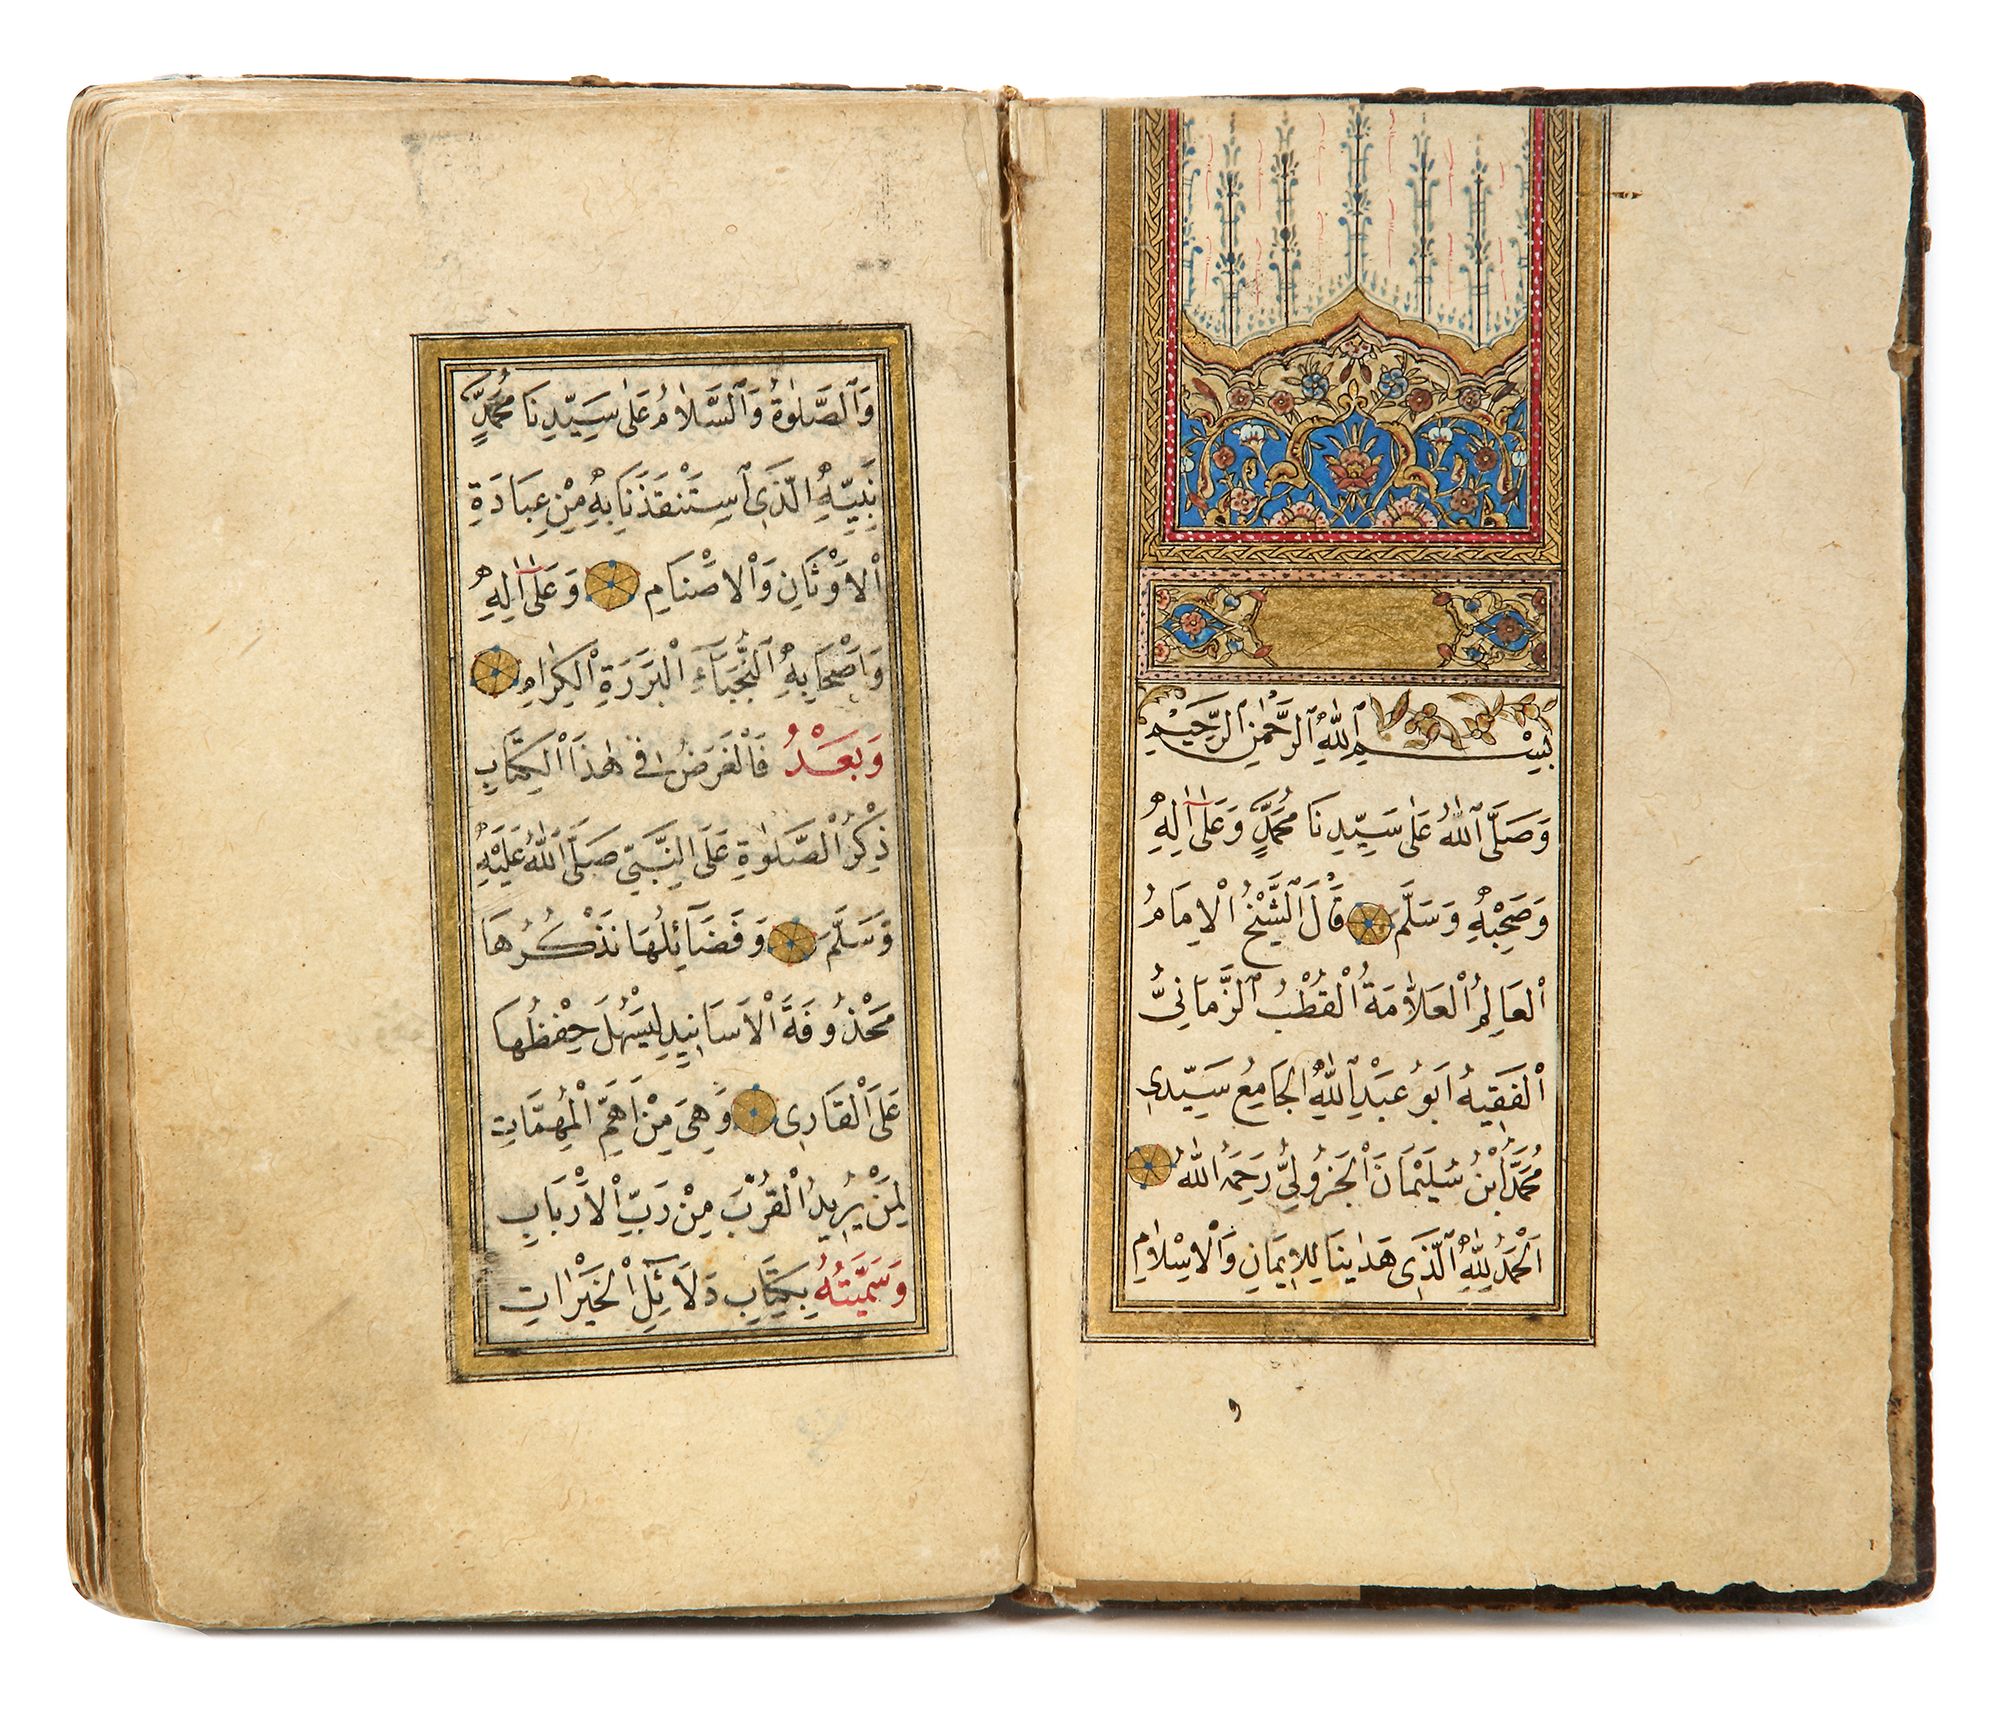 بِسْمِ ٱللّٰهِ ٱلرَّحْمٰنِ ٱلرَّحِيمِ
وَصَلَّى ٱللّٰهُ عَلٰى سَيِّدِنَا مُحَمَّدٍ وَعَلٰٓى اٰلِهِ
وَصَحْبِهِ وَسَلَّمَ قَالَ ٱلشَّيْخُ الْاِمَامُ
الْعَالِمُ الْعَلَّامَةُ الْقُطْبُ ٱلزَّمَانِيُّ
الْفَقِيهُ اَبُو عَبْدِ ٱللّٰهِ الْجَامِعُ سَيِّدِى
مُحَمَّدُ ابْنُ سُلَيْمَانَ الْجَزُولِىُّ رَحِمَهُ اللّٰهُ
اَلْحَمْدُ لِلّٰهِ ٱلَّذِى هَدٰينَا لِلْاِيمَانِ وَالْاِسْلَامِ
وَٱلصَّلٰوةُ وَٱلسَّلَامُ عَلٰى سَيِّدِنَا مُحَمَّدٍ
نَبِيِّهِ الَّذِى ٱسْتَنْقَذَنَا بِهِ مِنْ عِبَادَةِ
الْاَوْثَانِ وَالْاَصْنَامِ وَعَلٰٓى اٰلِهِ
وَاَصْحَابِهِ ٱلنُّجَبَآءِ الْبَرَرَةِ الْكِرَامِ
وَبَعْدُ فَالْغَرَضُ فِى هٰذَا الْكِتَابِ
ذِكْرُ ٱلصَّلٰوةِ عَلَى النَّبِىِّ صَلَّى ٱللّٰهُ عَلَيْهِ
وَسَلَّمَ وَفَضَآئِلُهَا نَذْكُرُهَا
مَحْذُوفَةَ الْاَسَانِيدِ لِيَسْهُلَ حِفْظُهَا
عَلَى الْقَارِى وَهِىَ مِنْ اَهَمِّ الْمُهِمَّاتِ
لِمَنْ يُرِيدُ الْقُرْبَ مِنْ رَبِّ الْاَرْبَابِ
وَسَمَّيْتُهُ بِكِتَابِ دَلَآئِلِ الْخَيْرَاتِ